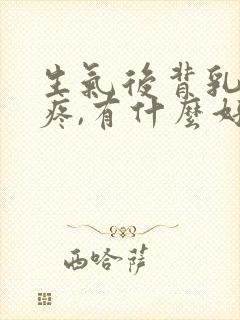 生氣後背乳
疼,有什麼好
西哈薩